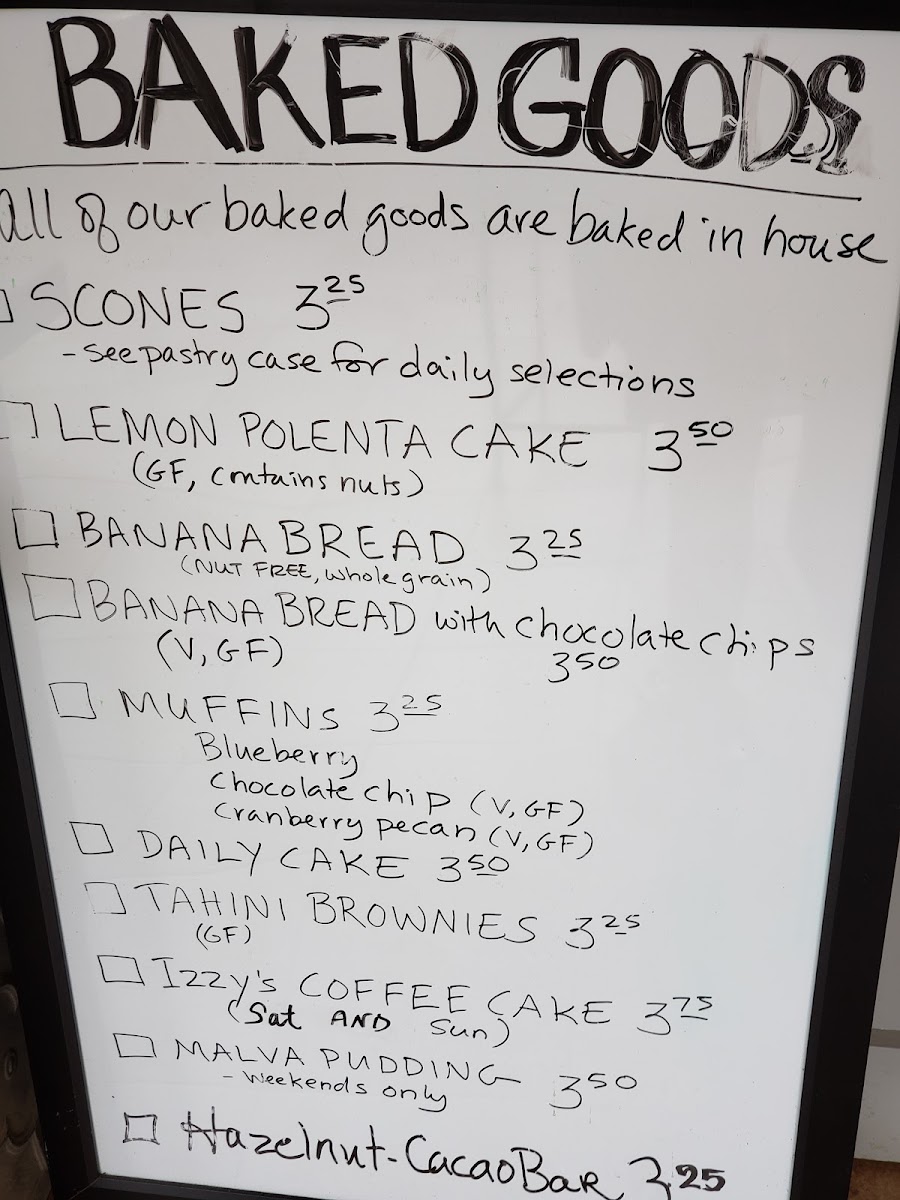 BAKED GOODS
all of our baked goods are baked in house
SCONES 3 25
- see pastry case for daily selections
LEMON POLENTA CAKE 3 50
(GF, contains nuts)
BANANA BREAD 3 25
(NUT FREE, whole grain)
BANANA BREAD with chocolate chips
(V, GF) 3 50
MUFFINS 3 25
Blueberry
Chocolate chip (V, GF)
Cranberry pecan (V, GF)
DAILY CAKE 3 50
TAHINI BROWNIES 3 25
(GF)
Izzy's COFFEE CAKE 3 75
(Sat AND Sun)
MALVA PUDDING 3 50
- weekends only
Hazelnut-Cacao BAR 3.25